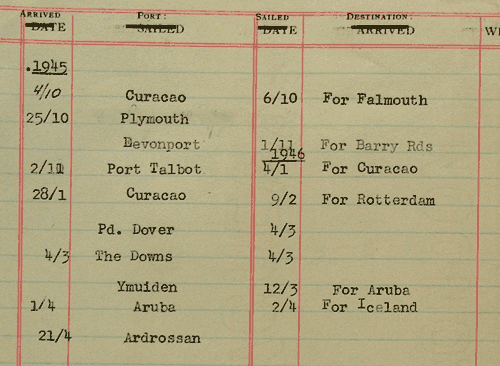 ARRIVED PORT: SAILED DESTINATION:
DATE SAILED DATE ARRIVED WH
.1945
4/10 Curacao 6/10 For Falmouth
25/10 Plymouth
Devonport 1/11 For Barry Rds
1946
2/11 Port Talbot 4/1 For Curacao
28/1 Curacao 9/2 For Rotterdam
Pd. Dover 4/3
4/3 The Downs 4/3
Ymuiden 12/3 For Aruba
1/4 Aruba 2/4 For Iceland
21/4 Ardrossan